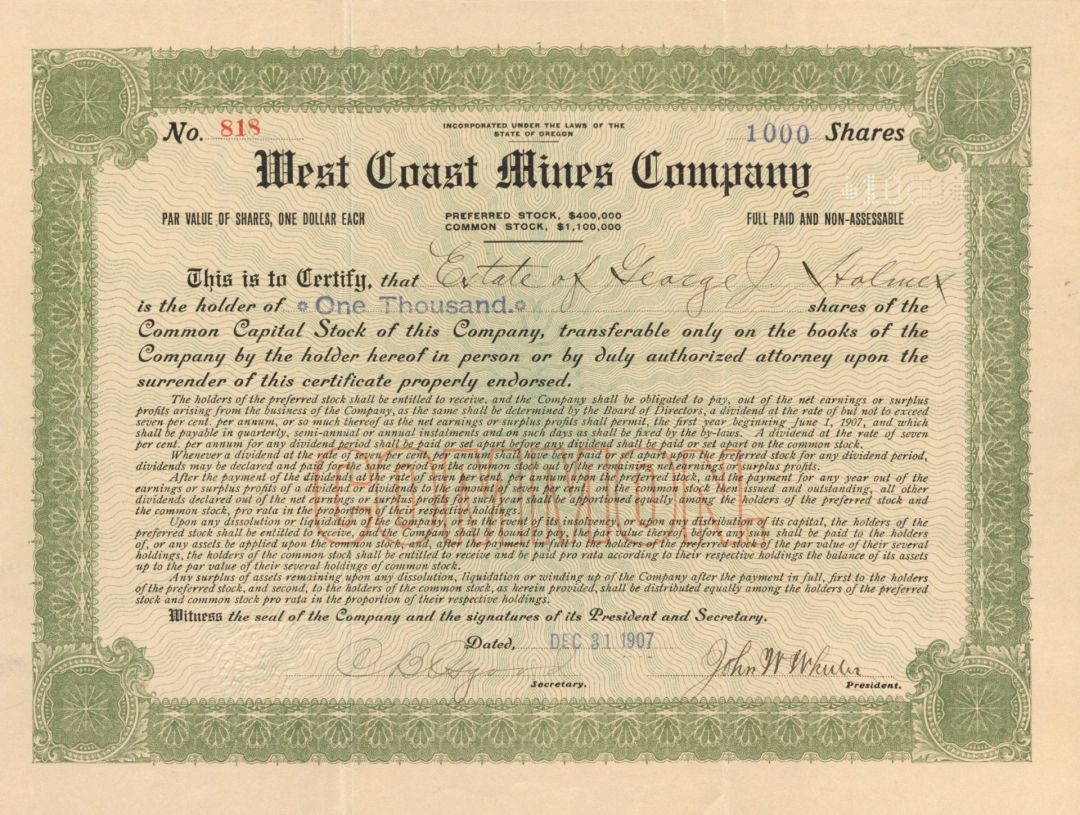 No. 818
INCORPORATED UNDER THE LAWS OF THE
STATE OF OREGON
1000 Shares
West Coast Mines Company
*1000*
PAR VALUE OF SHARES, ONE DOLLAR EACH
PREFERRED STOCK, $400,000
COMMON STOCK, $1,100,000
FULL PAID AND NON-ASSESSABLE
This is to Certify, that Estate of George J. Holmes
is the holder of One Thousand. shares of the
Common Capital Stock of this Company, transferable only on the books of the
Company by the holder hereof in person or by duly authorized attorney upon the
surrender of this certificate properly endorsed.
The holders of the preferred stock shall be entitled to receive, and the Company shall be obligated to pay, out of the net earnings or surplus
profits arising from the business of the Company, as the same shall be determined by the Board of Directors, a dividend at the rate of but not to exceed
seven per cent. per annum, or so much thereof as the net earnings or surplus profits shall permit, the first year beginning June 1, 1907, and which
shall be payable in quarterly, semi-annual or annual instalments and on such days as shall be fixed by the by-laws. A dividend at the rate of seven
per cent. per annum for any dividend period shall be paid or set apart before any dividend shall be paid or set apart on the common stock.
Whenever a dividend at the rate of seven per cent. per annum shall have been paid or set apart upon the preferred stock for any dividend period,
dividends may be declared and paid for the same period upon the common stock out of the remaining net earnings or surplus profits.
After the payment of the dividends at the rate of seven per cent. per annum upon the preferred stock, and the payment for any year out of the
earnings or surplus profits of a dividend or dividends to the amount of seven per cent. on the common stock issued and outstanding, all other
dividends declared out of the net earnings or surplus profits for such year shall be apportioned equally among the holders of the preferred stock and
the common stock, pro rata in the proportion of their respective holdings.
Upon any dissolution or liquidation of the Company, or in the event of its insolvency, or upon any distribution of its capital, the holders of the
preferred stock shall be entitled to receive, and the Company shall be bound to pay, the par value thereof before any sum shall be paid to the holders
of, or any assets be applied upon the common stock, and, after the payment in full to the holders of the preferred stock of the par value of their several
holdings, the holders of the common stock shall be entitled to receive and be paid pro rata according to their respective holdings the balance of its assets
up to the par value of their several holdings of common stock.
Any surplus of assets remaining upon any dissolution, liquidation or winding up of the Company after the payment in full, first to the holders
of the preferred stock, and second, to the holders of the common stock, as herein provided, shall be distributed equally among the holders of the preferred
stock and common stock pro rata in the proportion of their respective holdings.
COMMON
Witness the seal of the Company and the signatures of its President and Secretary.
Dated, DEC 31 1907
C B Osgood John W Wheeler
Secretary. President.